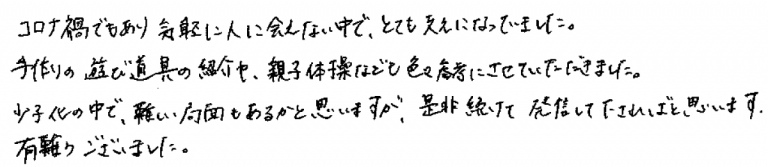 コロナ禍でもあり気軽に人に会えない中で、とても支えになっていました。
手作りの遊び道具の紹介や、親子体操なども色々参考にさせていただきました。
少子化の中で、難しい局面もあるかと思いますが、是非続けて発信して下さればと思います。
有難うございました。